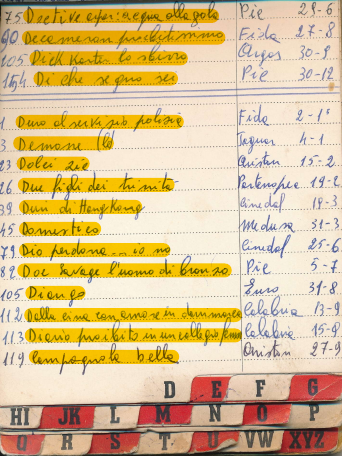 75 Dective superi: acqua alla gola Pie 29-6
90 Decameron proibitissimo Fida 27-8
105 Dick Kartis lo sbirro Argos 30-9
154 Di che segno sei Pie 30-12
1 Duro al servizio polizia Fida 2-1
3 Demone (Il) Jaguar 4-1
23 Dolci zie Oristan 15-2
26 Due figli dei trinità Partenopea 19-2
39 Duri di Hong Kong Cinedal 19-3
45 Domestico Medusa 31-3
79 Dio perdona... io no Cinedal 25-6
82 Doc Savage l'uomo di bronzo Pic 5-7
105 Django Euro 31-8
112 Dalla cina con amore in dammagia Calabria 13-9
113 Diario proibito in un collegio femm Calabria 15-9
119 Compagnola bella Oristan 27-9
D E F G
HI JK L M N O P
Q R S T U VW XYZ